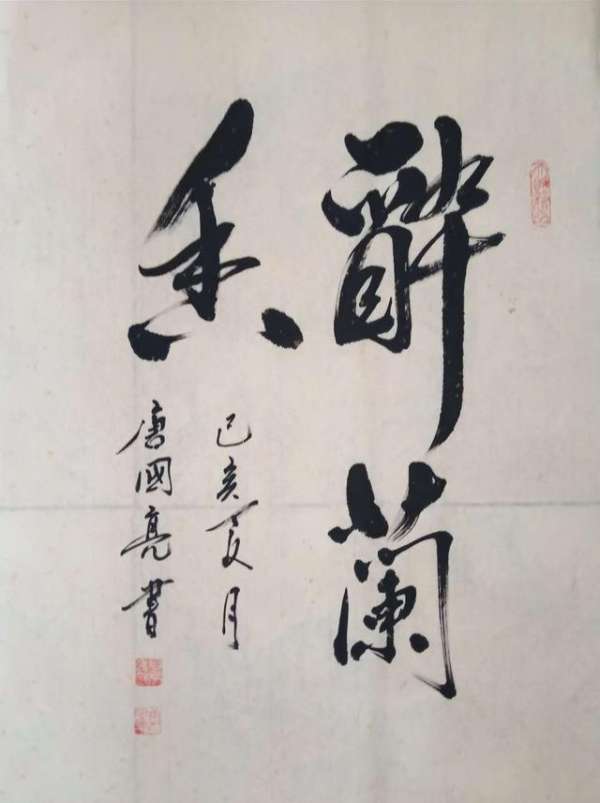 醉蘭
香
己亥夏月
唐國亮書